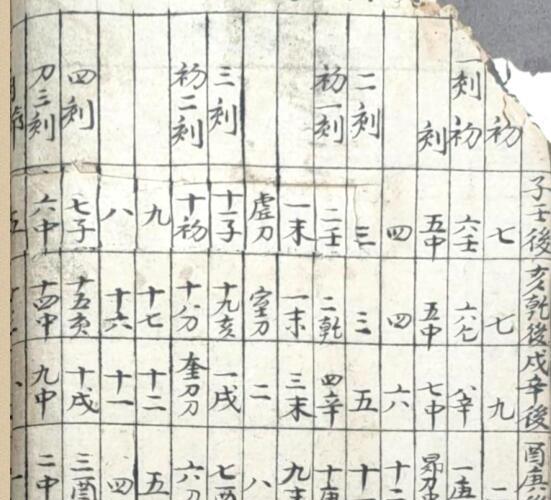 子壬後亥乾後戌辛後酉庚
初 七 七 九
一刻初 六壬 六 八辛 一庚
刻 五中 五中 七中 昴刀
四 四 六
二刻 三 三 五
初一刻 二壬 二乾 四辛 十庚
一末 一末 三末 九末
虛刀 室刀 二 八
三刻 十一子 十九亥 一戌 七酉
初二刻 十初 十八分 奎刀刀 六刀
九 十七 十二 五
八 十六 十一 四
四刻 七子 十五亥 十戌 三酉
刀三刻 六中 十四中 九中 二中
五